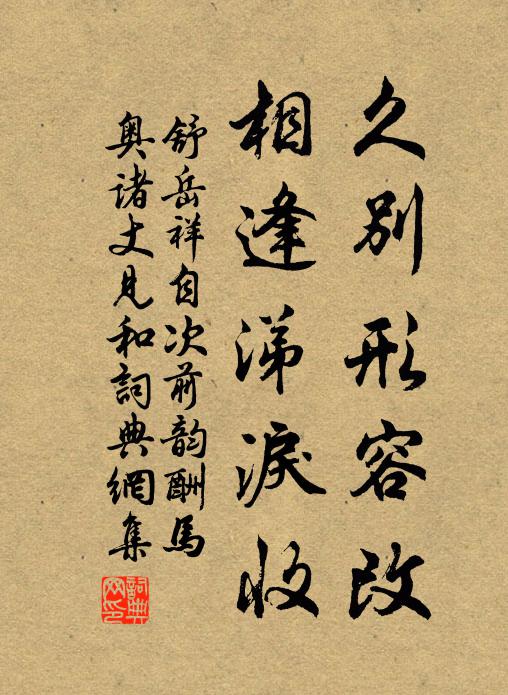 久別形容改
相逢涕淚收
舒岳祥自次前韵酬馬
奥諸丈見和詞典網集
詞典
网印